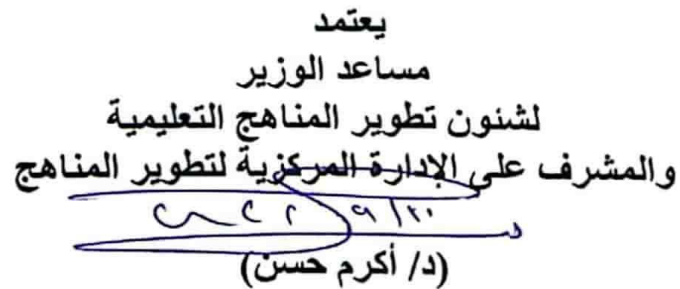 يعتمد
مساعد الوزير
لشئون تطوير المناهج التعليمية
والمشرف على الإدارة المركزية لتطوير المناهج
(د/ أكرم حسن)